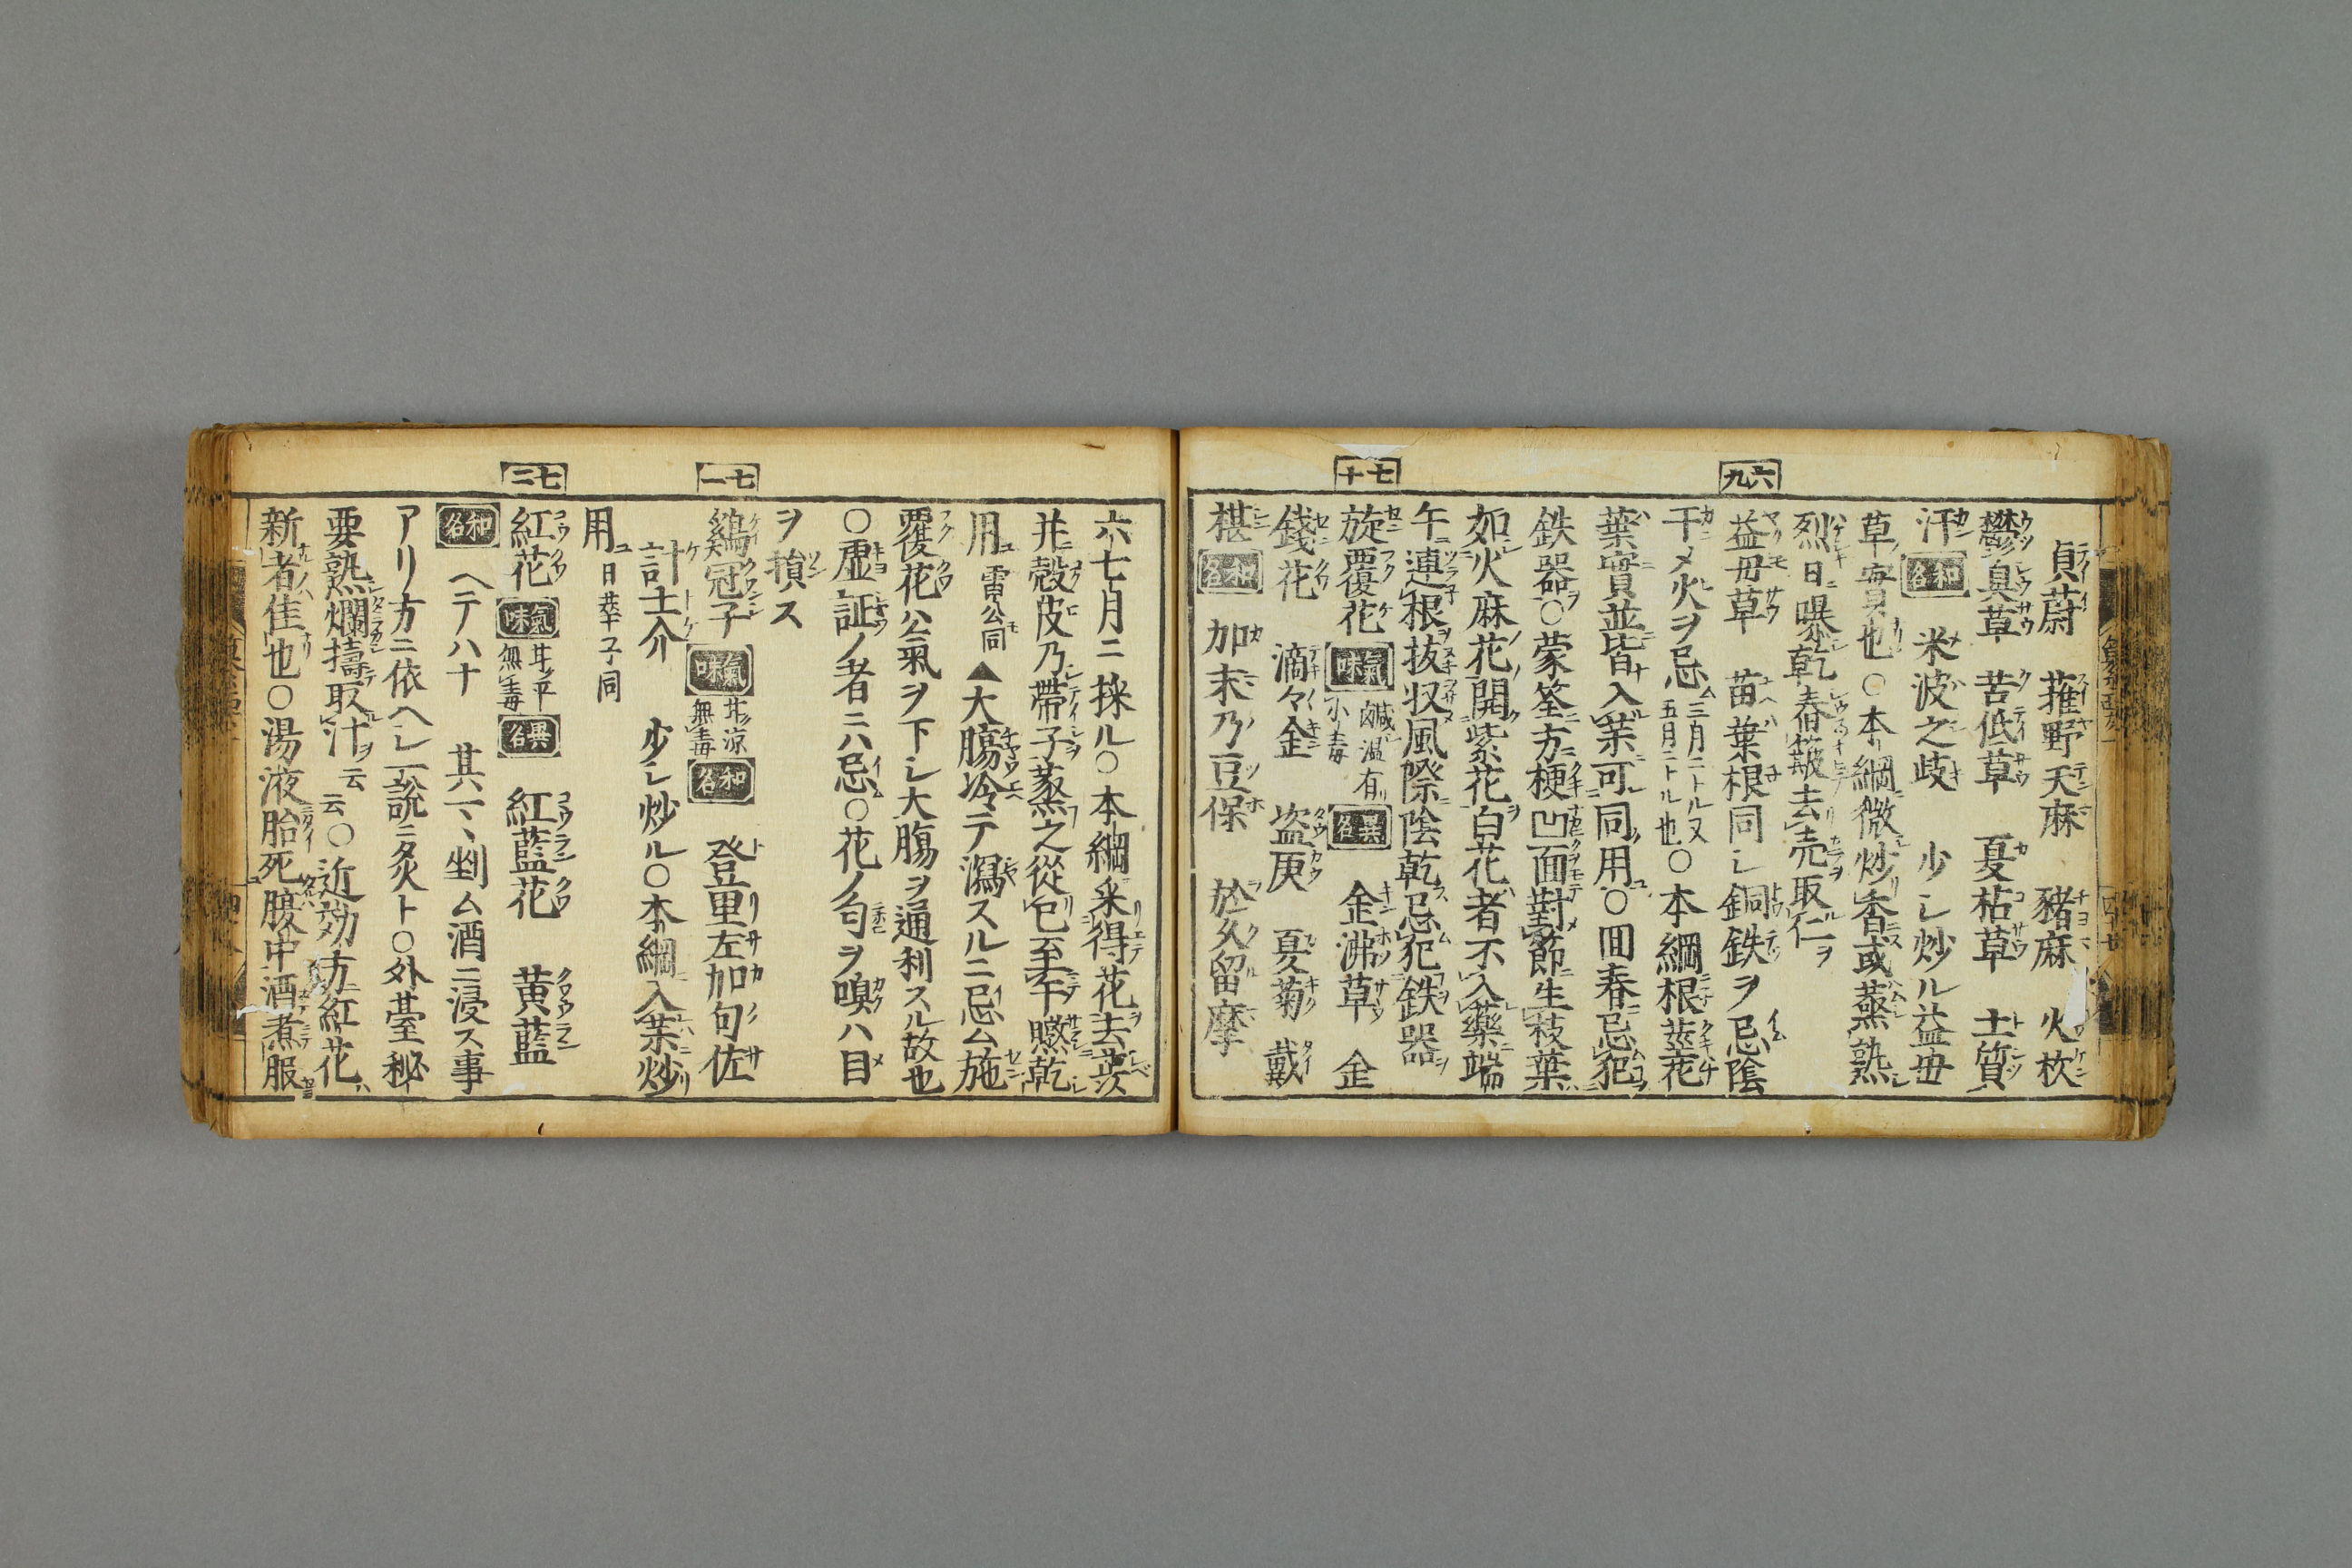 貞蔚 蓷野天麻 豬麻 火杴
鬱臭草 苦低草 夏枯草 土質
汗 和名 米波之岐 少シ炒ル益毋
草實也○本綱微炒香或蒸熟
烈日曝乾舂簸去壳取仁ヲ
六九
益毋草 苗葉根同シ銅鉄ヲ忌陰
干メ火ヲ忌三月ニトル又五月ニトル也○本綱根莖花
葉實並皆入薬可同用○囬春忌犯
鉄器○蒙筌方梗凹面對節生枝葉
如火麻花開紫花白花者不入藥端
午連根抜収風際陰乾忌犯鉄器
七十
旋覆花 氣味 鹹温有小毒 異名 金沸草 金
錢花 滴々金 盗庚 夏菊 戴
椹 和名 加末乃豆保 於久留摩
六七月ニ採ル○本綱采得花去蕊
并殼皮乃帶子蒸之從巳至午曬乾
用雷公同▲大膓冷テ瀉スルニ忌ム旋
覆花ハ氣ヲ下シ大膓ヲ通利スル故也
○虚証ノ者ニハ忌○花ノ匂ヲ嗅ハ目
ヲ損ス
七一
鷄冠子 氣味 甘涼無毒 和名 登里左加句佐
計土介 少シ炒ル○本綱入薬炒
用日華子同
七二
紅花 氣味 甘平無毒 異名 紅藍花 黄藍
和名 ヘテハナ 其マヽ剉ム酒ニ浸ス事
アリ方ニ依ヘシ一説ニ炙ト○外臺秘
要熟爛擣取汁云云○近効方紅花
新者佳也○湯液胎死腹中酒煮服